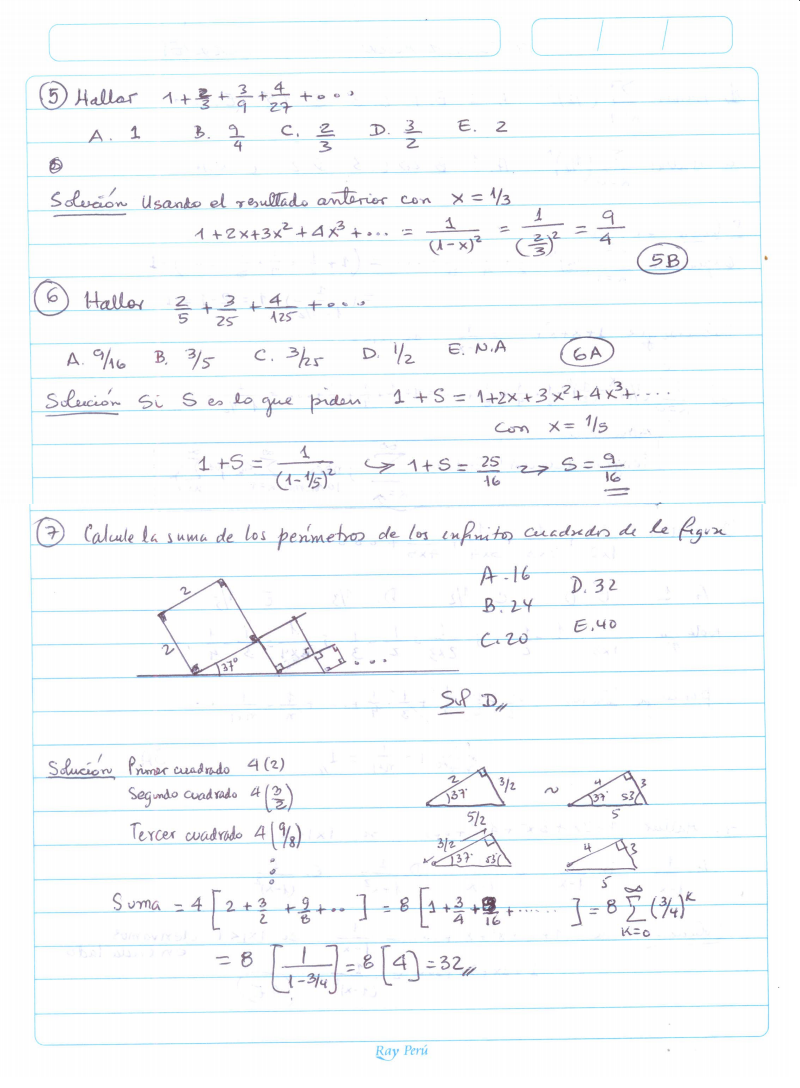 5 Hallar 1 + 2/3 + 3/9 + 4/27 + ...
A. 1 B. 9/4 C. 2/3 D. 3/2 E. 2
Solución Usando el resultado anterior con x = 1/3
1 + 2x + 3x² + 4x³ + ... = 1/(1-x)² = 1/(2/3)² = 9/4
5B
6 Hallar 2/5 + 3/25 + 4/125 + ...
A. 9/16 B. 3/5 C. 3/25 D. 1/2 E. N.A 6A
Solución Si S es lo que piden 1 + S = 1 + 2x + 3x² + 4x³ + ....
con x = 1/5
1 + S = 1/(1-1/5)² ↪ 1 + S = 25/16 → S = 9/16
7 Calcule la suma de los perímetros de los infinitos cuadrados de la figura
A. 16 D. 32
B. 24 E. 40
C. 20
2
2
37°
...
Sol D
Solución Primer cuadrado 4(2)
Segundo cuadrado 4(3/2)
Tercer cuadrado 4(9/8)
2 3/2 37° 5/2 ~ 4 3 37° 53 5
3/2 37° 53 4 3 5
Suma = 4[2 + 3/2 + 9/8 + ..] = 8[1 + 3/4 + 9/16 + ......] = 8 ∞ Σ K=0 (3/4)^K
= 8[1/(1-3/4)] = 8[4] = 32
Ray Perú